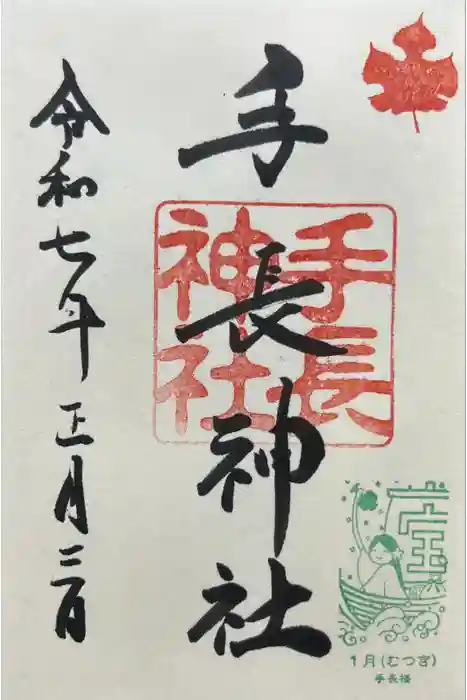 手長神社
手長
神社
令和七年正月三日
宝
1月(むつき)
手長様